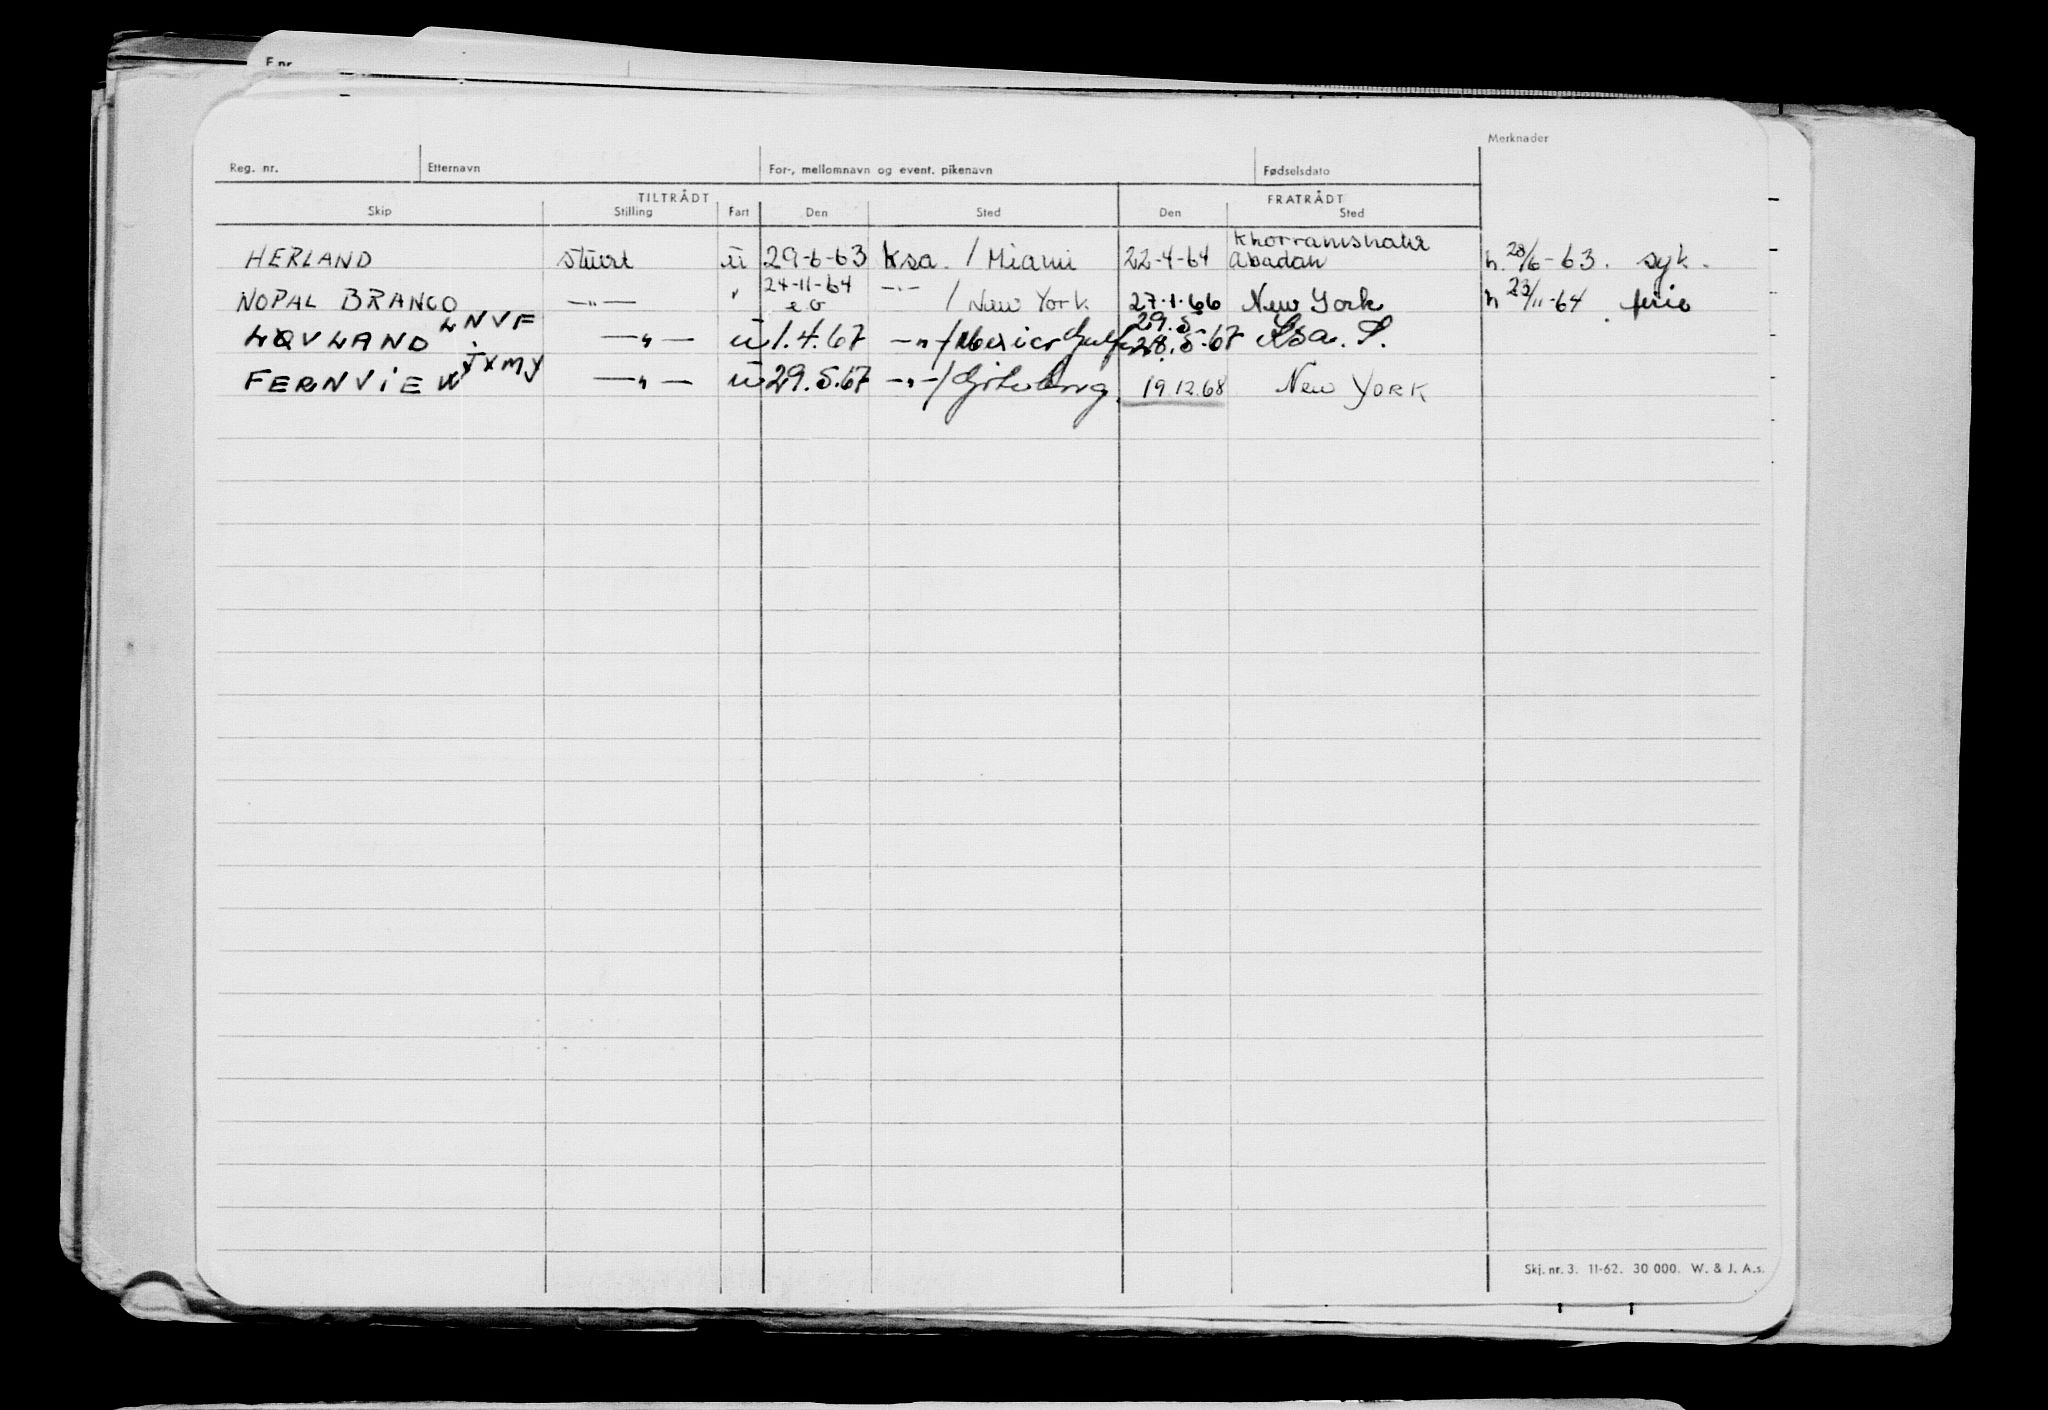 F.nr.
Merknader
Reg. nr. Etternavn For-, mellomnavn og event. pikenavn Fødselsdato
TILTRÅDT FRATRÅDT
Skip Stilling Fart Den Sted Den Sted
Khorramshahr
HERLAND Stuert u 29-6-63 Ksa. / Miami 22-4-64 Abadan h. 28/6-63. syk.
24-11-64
NOPAL BRANCO —"— " e o —"— / New York 27.1.66 New York h 23/11-64 ferie
LNVF 29.5
LØVLAND —"— u 1.4.67 —"— / Mexico Gulf 28.5-67 Ksa. S.
JXMY
FERNVIEW —"— u 29.5.67 —"— / Göteborg 19.12.68 New YORK
Skj. nr. 3. 11-62. 30 000. W. & J. A.s.